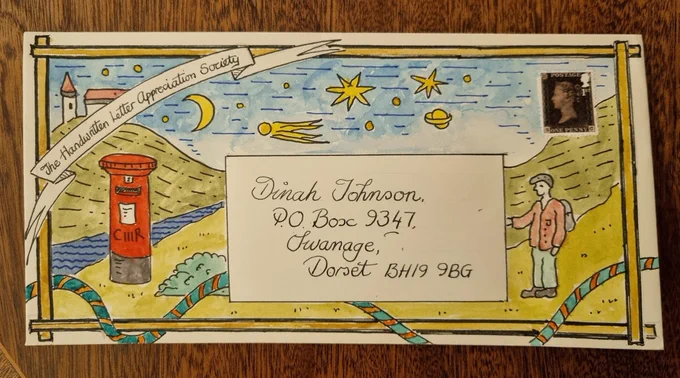 The Handwritten Letter Appreciation Society
POSTAGE
ONE PENNY
CIIIR
Dinah Johnson,
P.O. Box 9347,
Swanage,
Dorset BH19 9BG